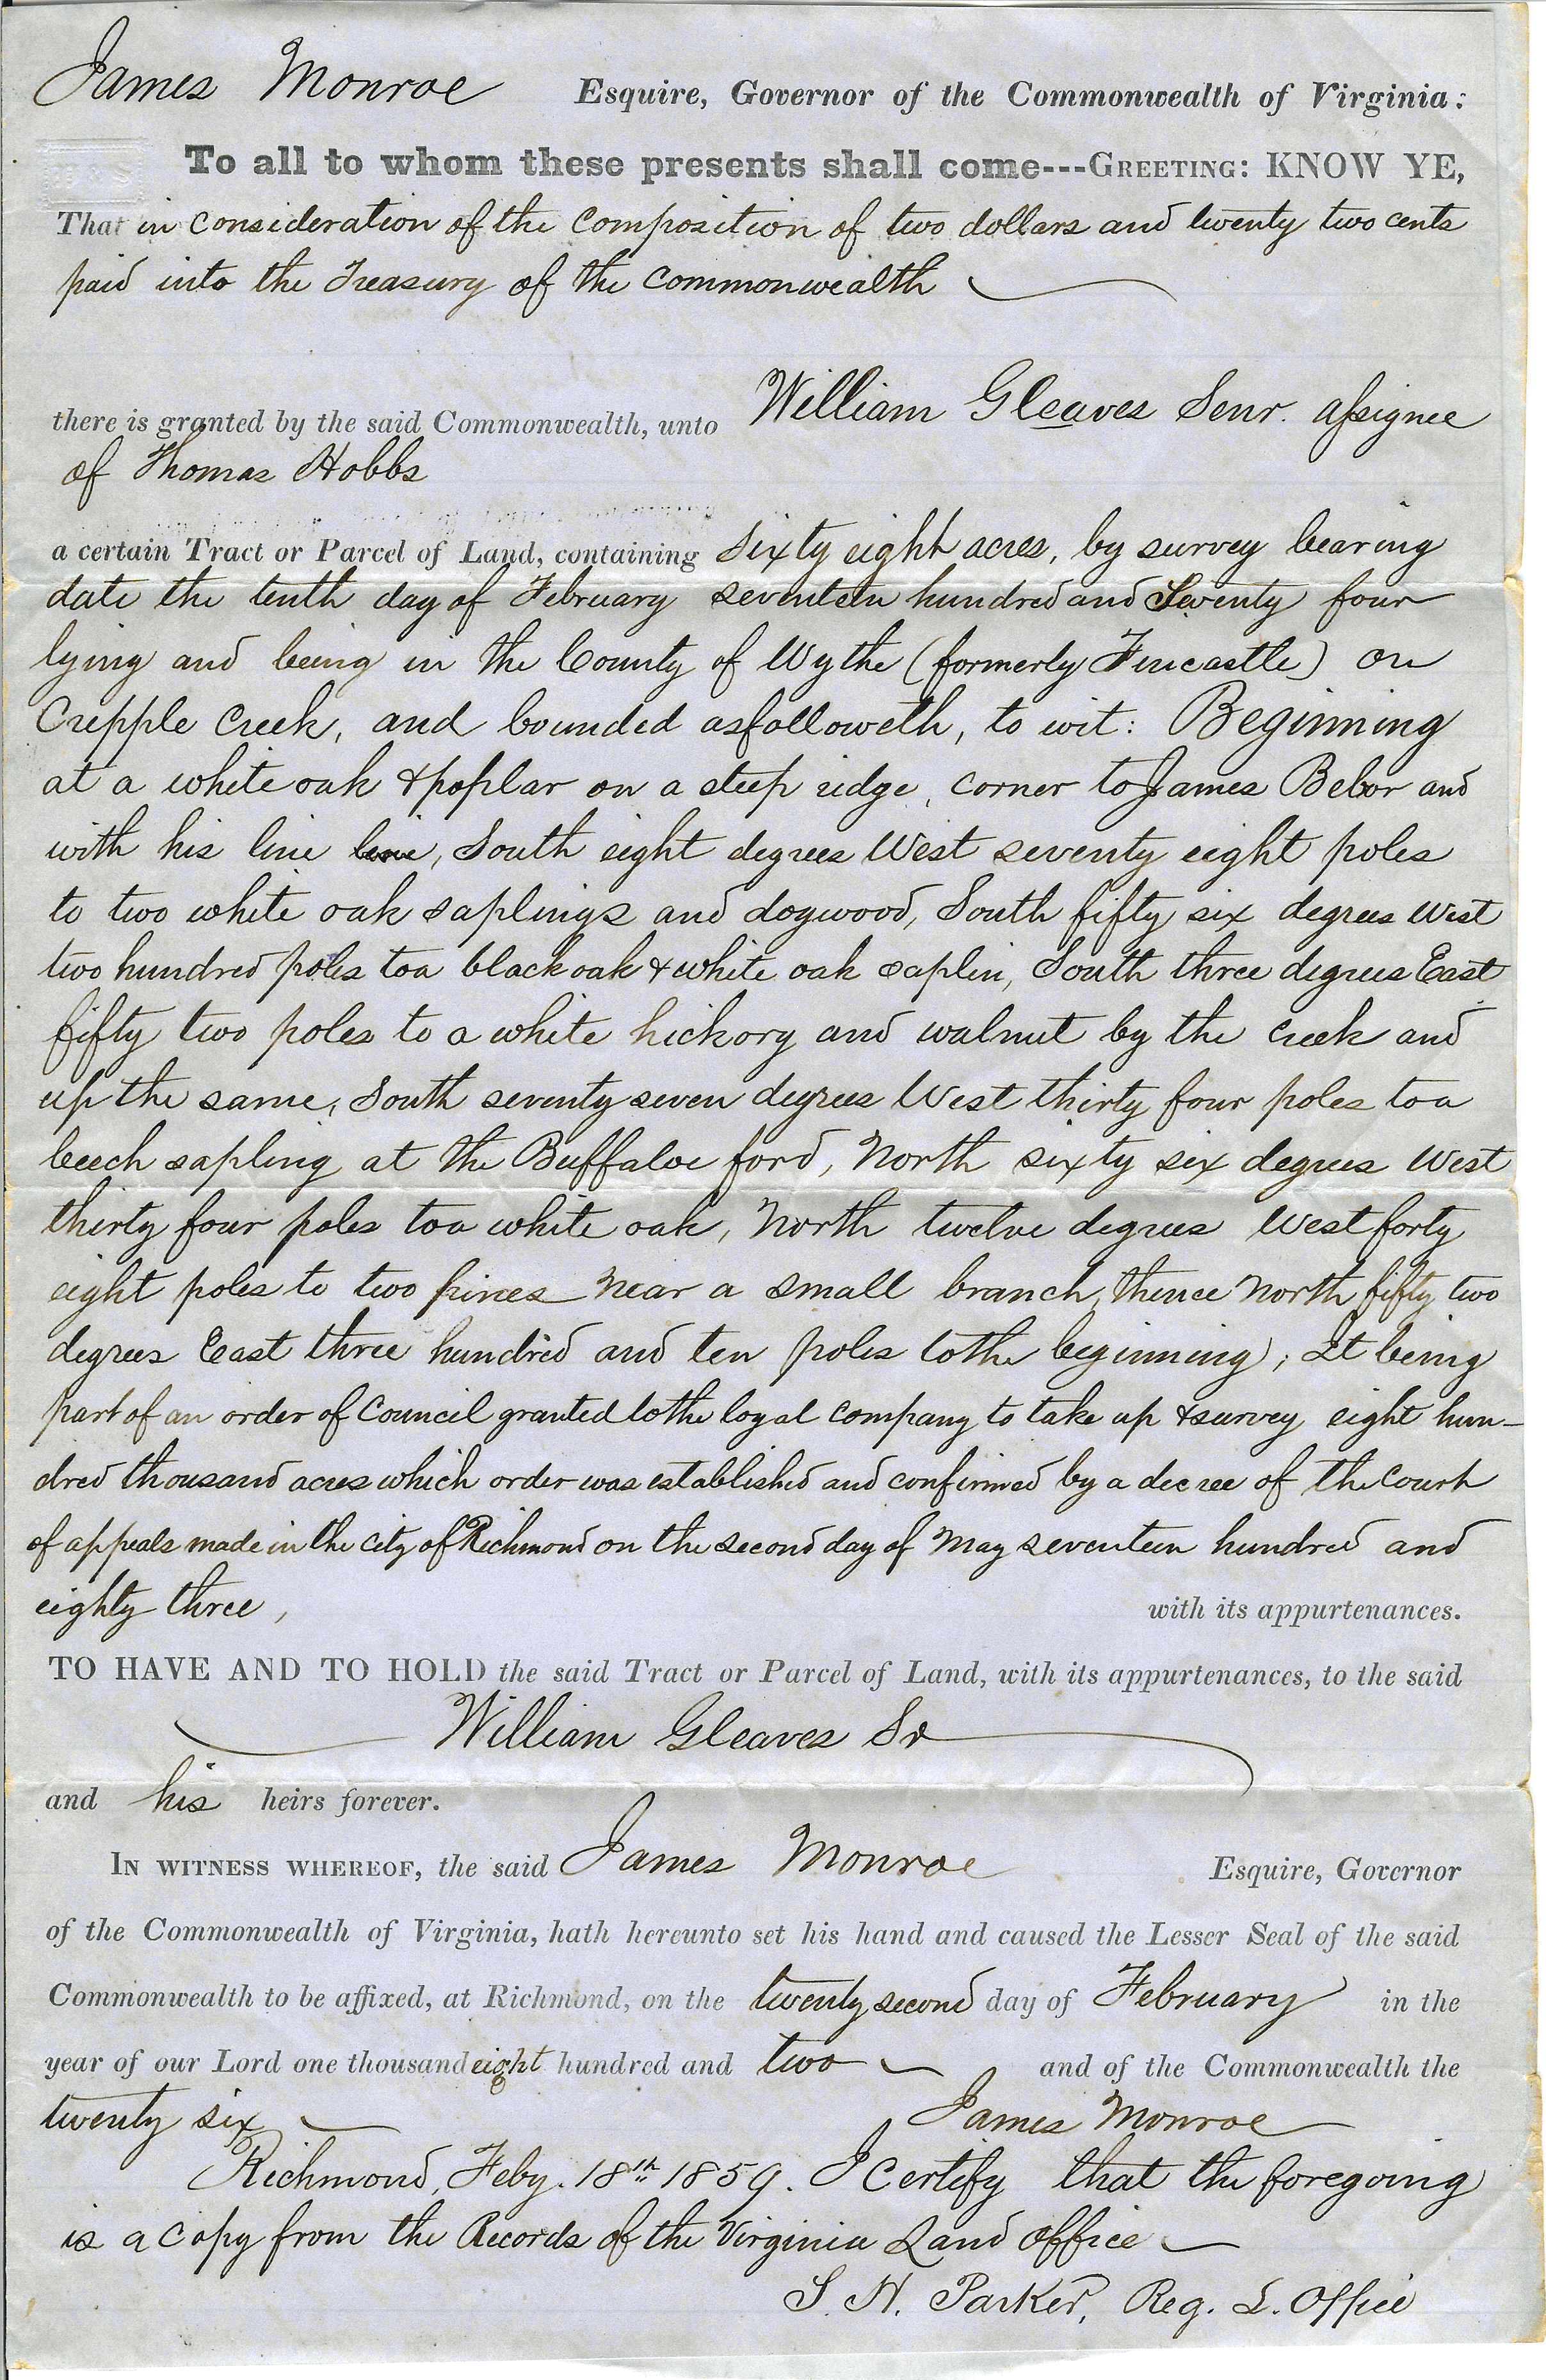 James Monroe Esquire, Governor of the Commonwealth of Virginia:
To all to whom these presents shall come---GREETING: KNOW YE,
That in consideration of the Composition of two dollars and twenty two cents
paid into the Treasury of the Commonwealth
there is granted by the said Commonwealth, unto William Gleaves Senr. assignee
of Thomas Hobbs
a certain Tract or Parcel of Land, containing Sixty eight acres, by survey bearing
date the tenth day of February seventeen hundred and Seventy four
lying and being in the County of Wythe (formerly Fincastle) on
Cripple Creek, and bounded asfolloweth, to wit: Beginning
at a white oak & poplar on a steep ridge, corner to James Bebor and
with his line line, South eight degrees West seventy eight poles
to two white oak saplings and dogwood, South fifty six degrees West
two hundred poles to a black oak & white oak saplin, South three degrees East
fifty two poles to a white hickory and walnut by the creek and
up the same, South seventy seven degrees West thirty four poles to a
beech sapling at the Buffaloe ford, North sixty six degrees West
thirty four poles to a white oak, North twelve degrees West forty
eight poles to two pines near a small branch, thence North fifty two
degrees East three hundred and ten poles to the beginning; It being
part of an order of Council granted to the loyal company to take up & survey eight hun-
dred thousand acres which order was established and confirmed by a decree of the Court
of appeals made in the city of Richmond on the second day of May seventeen hundred and
eighty three, with its appurtenances.
TO HAVE AND TO HOLD the said Tract or Parcel of Land, with its appurtenances, to the said
William Gleaves Sr
and his heirs forever.
IN WITNESS WHEREOF, the said James Monroe Esquire, Governor
of the Commonwealth of Virginia, hath hereunto set his hand and caused the Lesser Seal of the said
Commonwealth to be affixed, at Richmond, on the twenty second day of February in the
year of our Lord one thousand eight hundred and two and of the Commonwealth the
twenty six James Monroe
Richmond, Feby. 18th 1859. I Certify that the foregoing
is a copy from the Records of the Virginia Land Office
S. H. Parker, Reg. L. Office